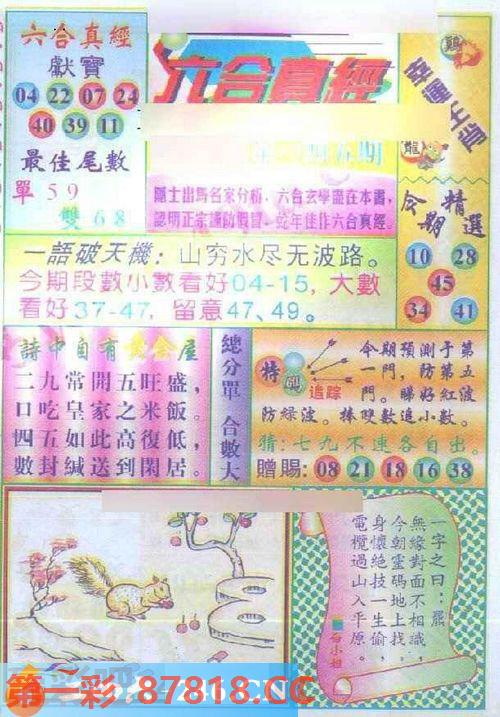 六合真經
獻寶
04 22 07 24
40 39 11
最佳尾數
單 5 9
雙 6 8
六合真經
隱士出馬名家分析，六合玄學盡在本書，
認明正宗謹防假冒，蛇年佳作六合真經。
鷄
龍
今期精選
10 28
45
34 41
一語破天機：山穷水尽无波路。
今期段數小數看好04-15，大數
看好37-47，留意47、49。
詩中自有黄金屋
二九常開五旺盛，
口吃皇家之米飯。
四五如此高復低，
數封緘送到閑居。
總分單 合數大
特碼
追踪
今期預測于第
一門，防第五
門。睇好紅波
防綠波。捧雙數追小數。
猜：七九不連各自出。
贈賜：08 21 18 16 38
一字之曰：羆
無緣對面不相識，
今朝靈碼地上找，
身懷絕技一生偷，
電欖過山入平原。
白小姐
第一彩 87818.CC